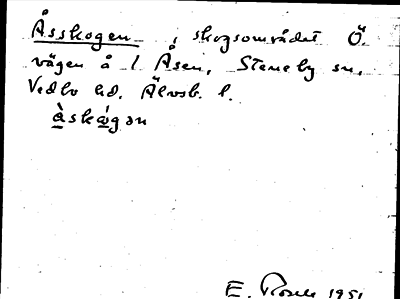 Åsskogen, skogsområdet Ö.
vägen å l Åsen, Steneby sn,
Vedbo hd. Älvsb. l.
àskágən
E. 1951